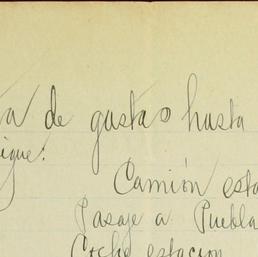 de gastos hasta
Camión esta
Pasaje a Puebla
Coche estacion